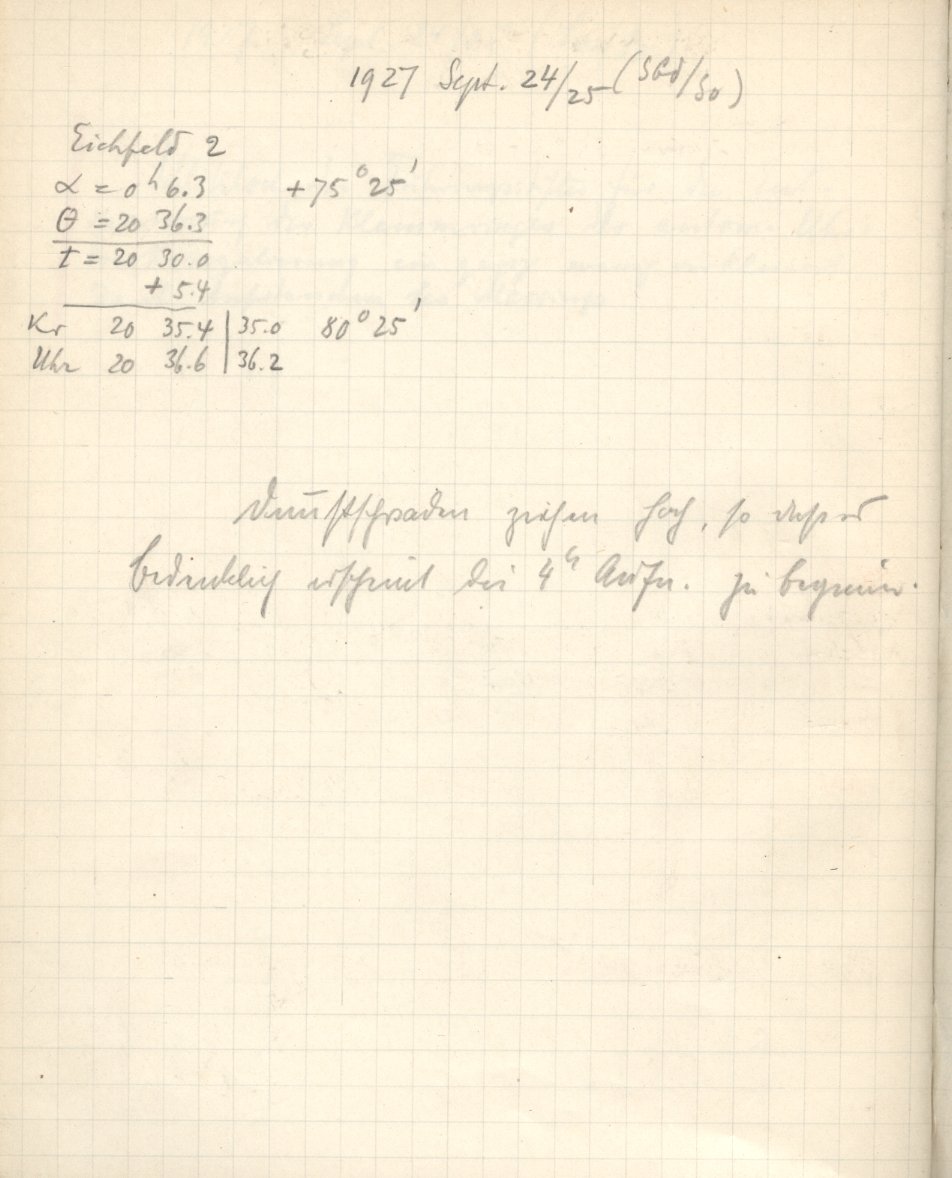 1927 Sept. 24/25 (Sbd/So)
Eichfeld 2
α = 0ʰ 6.3 +75° 25'
θ = 20 36.3
t = 20 30.0
+ 5.4
Kr 20 35.4 | 35.0 80° 25'
Uhr 20 36.6 | 36.2
Dunstschwaden ziehen hoch, so daß es
bedenklich erscheint die 4ʰ Aufn. zu beginnen.